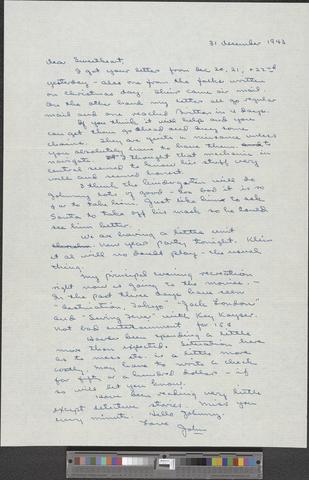 31 december 1943
dear Sweetheart,
I got your letter from Dec 20, 21, + 22nd
yesterday - also one from the folks written
on Christmas day. Theirs came air mail.
On the other hand my letters all go regular
mail and one reached in 4 days.
If you think it will help and you
can get them go ahead and buy some
chains. They are quite a nuisance unless
you absolutely have to have them
navigate. I thought that mechanic in
central seemed to know his stuff very
well and seemed honest.
I think the kindergarten will do
Johnny lots of good - too bad it is so
far to take him. Just like him to ask
Santa to take off his mask so he could
see him better.
We are having a little unit
new year party tonight. Klein
et al will no doubt play - the usual
thing.
My principal evening recreation
right now is going to the movies. -
In the past three days have seen
"Destination, Tokyo" "Jack London"
and "Swing Fever" with Kay Kyser.
Not bad entertainment for 15¢
Have been spending a little
more than expected. Situation here
as to mess etc. is a little more
costly. May have to write a check
for fifty or a hundred dollars - if
so will let you know.
Have been reading very little
except detective stories. Miss you
every minute. Hello Johnny.
Love
John